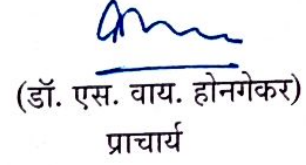 (डॉ. एस. वाय. होनगेकर)
प्राचार्य